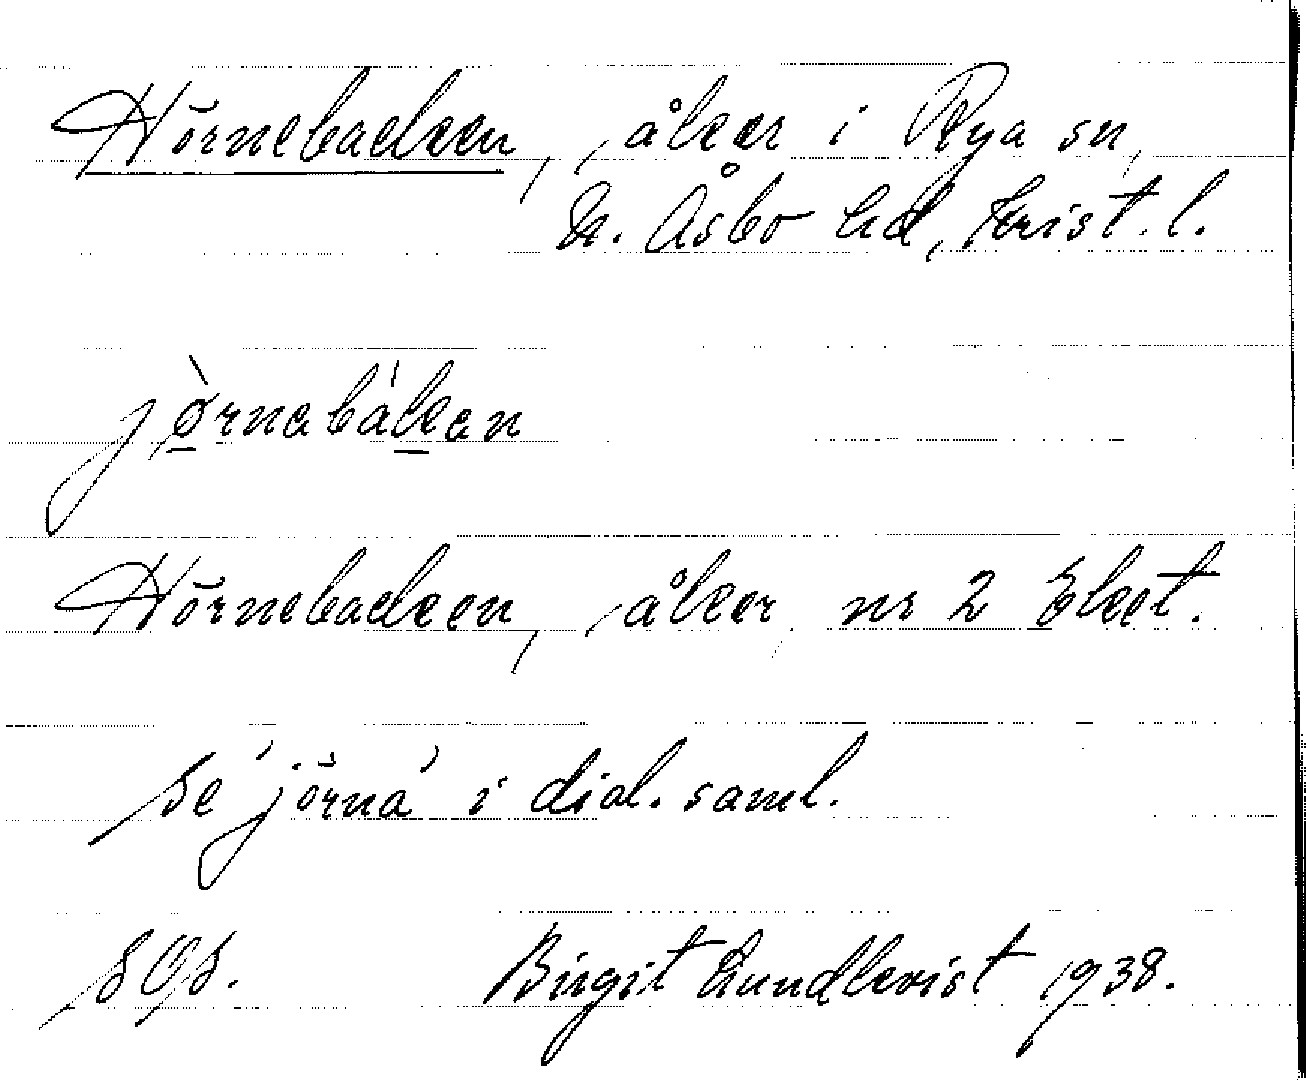 Hörnebacken, åker i Rya sn,
N. Åsbo hd, Krist. l.
jø̀rnabákan
Hörnebacken, åker, nr 2 Eket.
Se 'jörna' i dial. saml.
SOS. Birgit Lundkvist 1938.